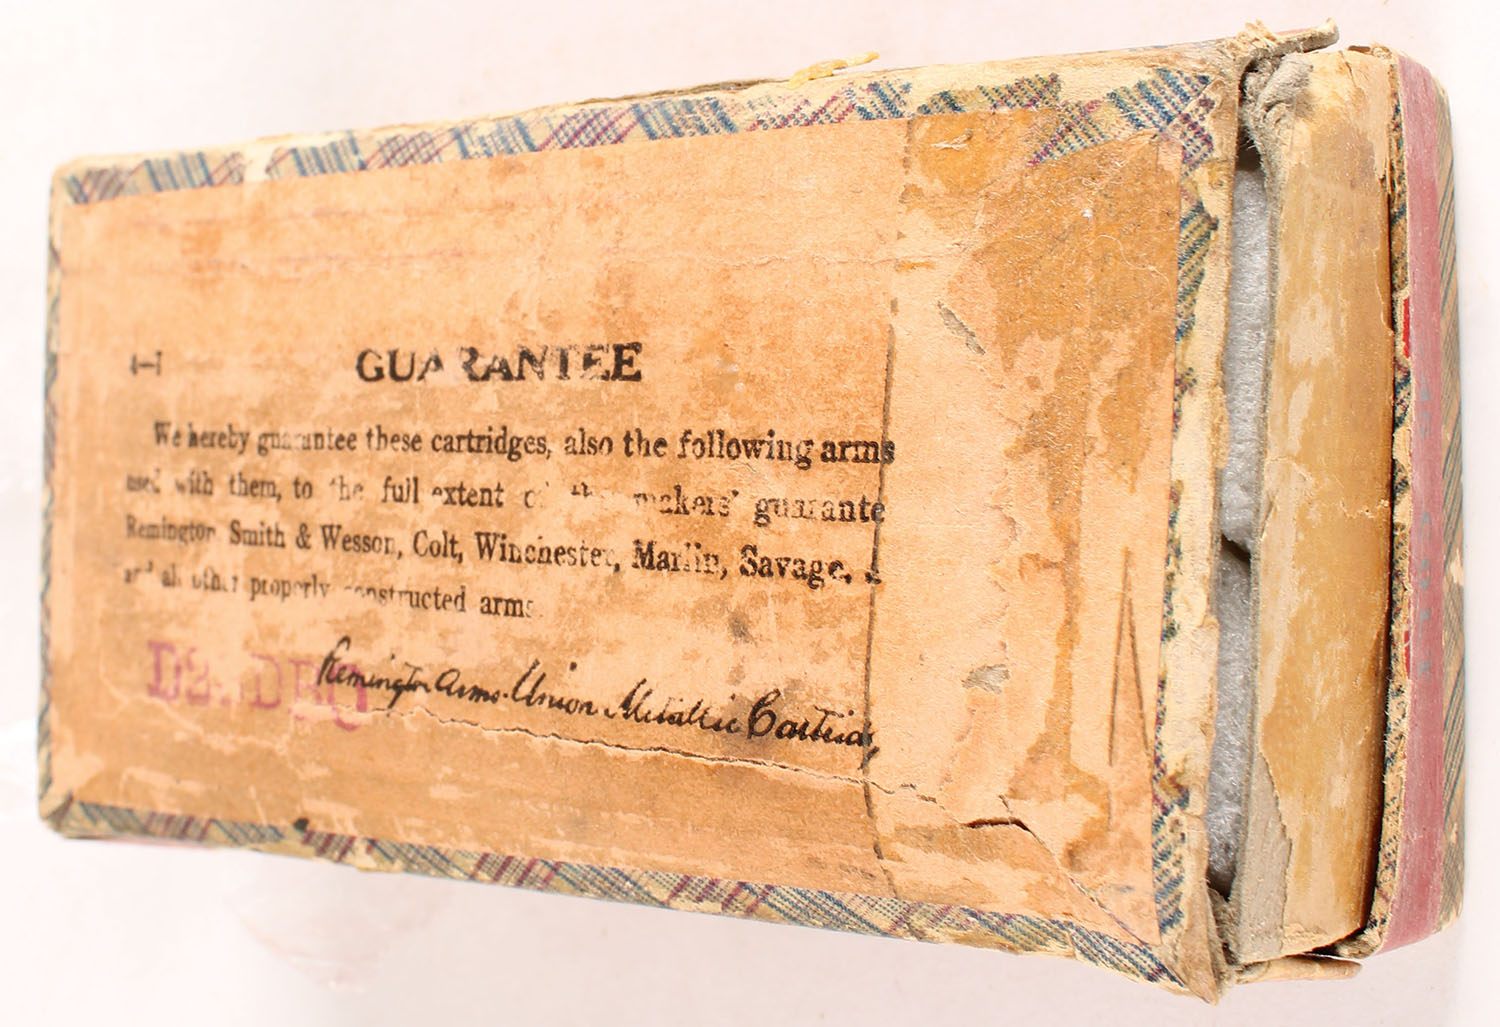 GUARANTEE
We hereby guarantee these cartridges, also the following arms
used with them, to the full extent of the makers' guarante
Remington Smith & Wesson, Colt, Winchester, Marlin, Savage, &
and all other properly constructed arms.
Remington Arms-Union Metallic Cartridg